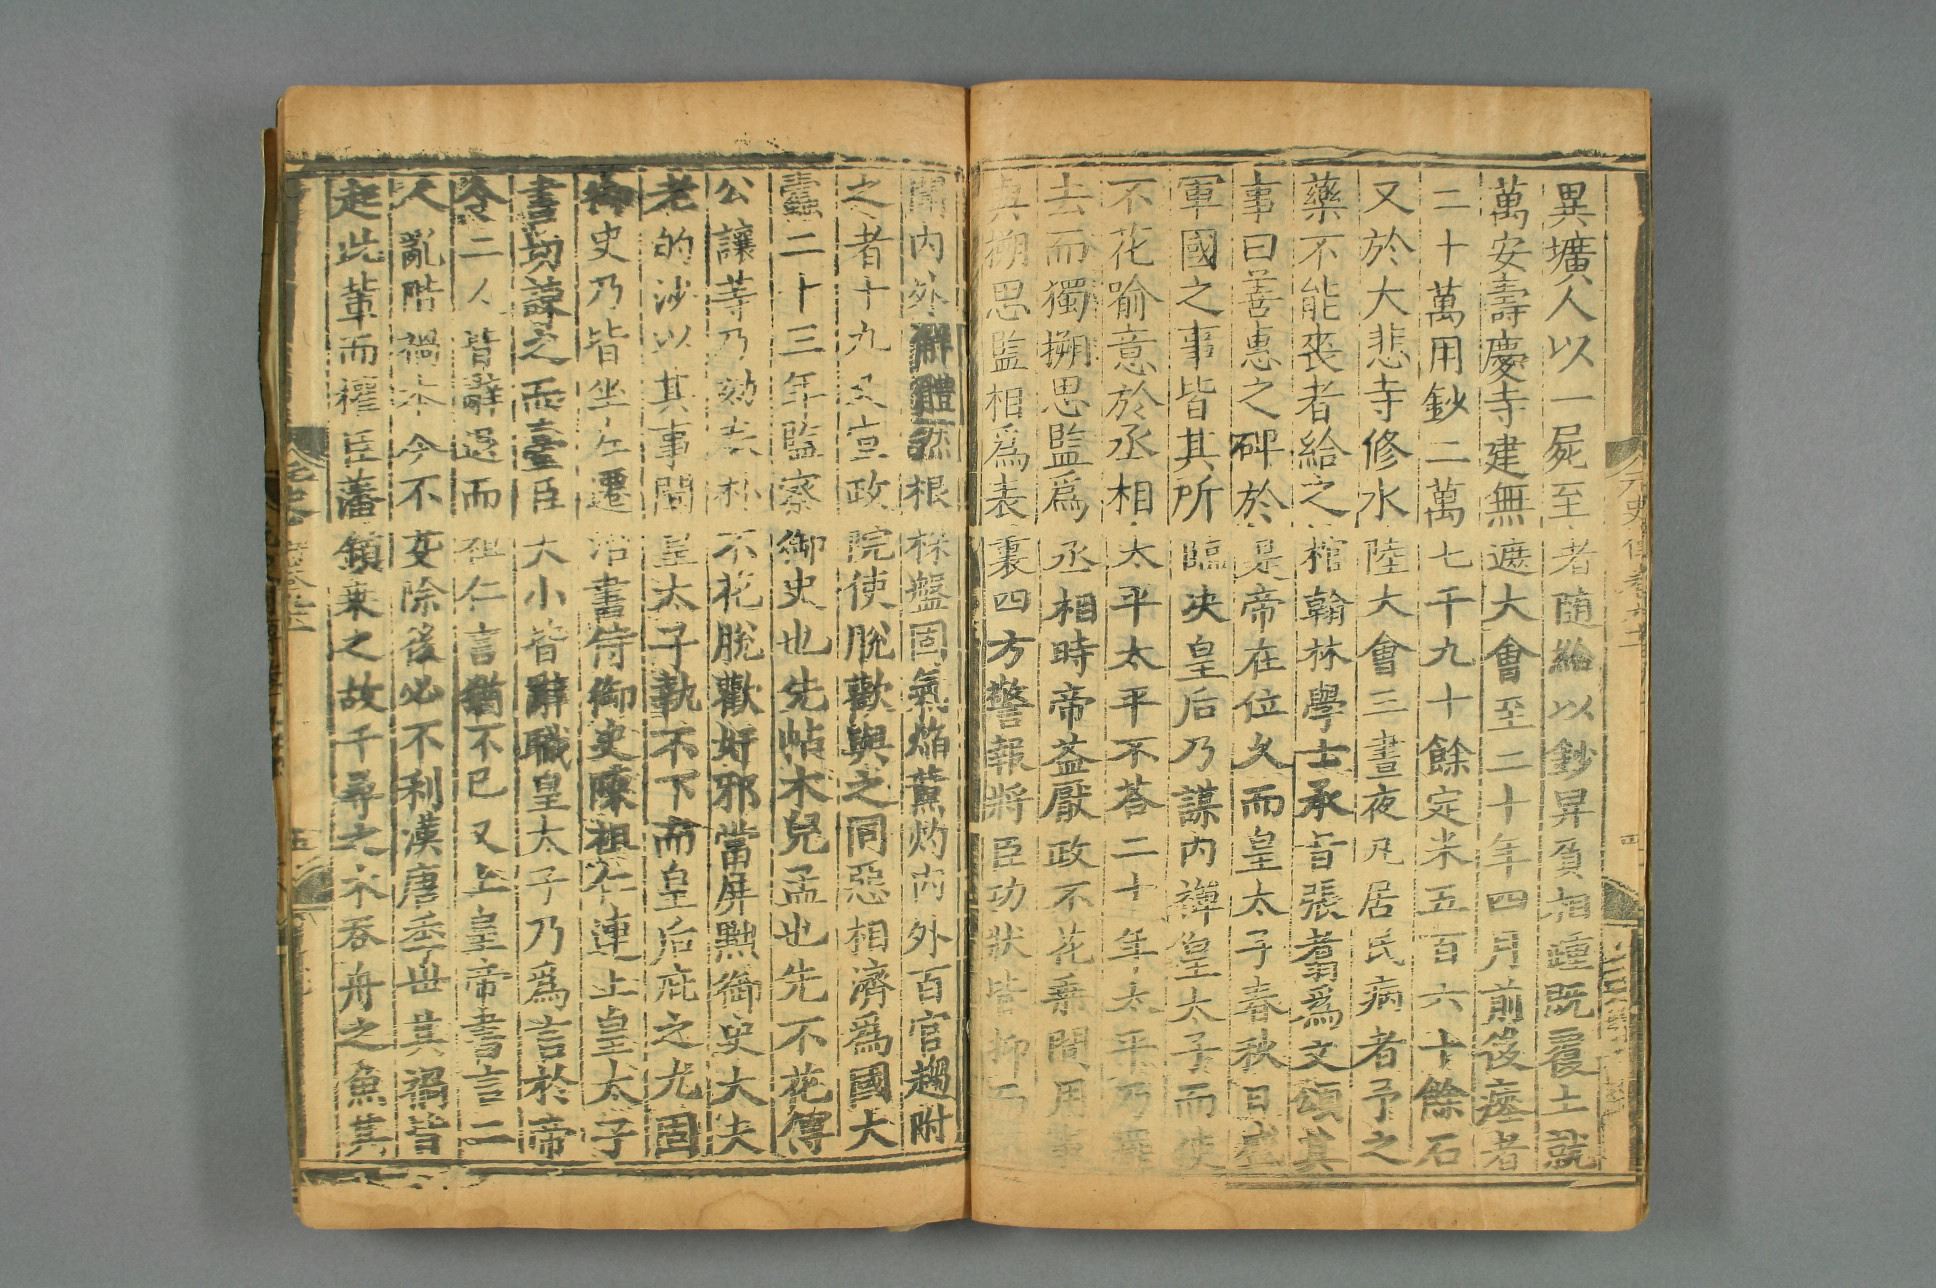 異壙人以一屍至者隨給以鈔舁負相踵既覆土就
萬安壽慶寺建無遮大會至二十年四月前後瘞者
二十萬用鈔二萬七千九十餘定米五百六十餘石
又於大悲寺修水陸大會三晝夜凡居民病者予之
藥不能喪者給之棺翰林學士承旨張翥爲文頌其
事曰善惠之碑於是帝在位久而皇太子春秋日盛
軍國之事皆其所臨決皇后乃謀內禪皇太子而使
不花喻意於丞相太平太平不荅二十年太平乃罷
去而獨搠思監爲丞相時帝益厭政不花乘間用事
與搠思監相爲表裏四方警報將臣功狀皆抑而不
聞內外解體然根株盤固氣焰薰灼內外百官趨附
之者十九又宣政院使脫歡與之同惡相濟爲國大
蠹二十三年監察御史也先帖木兒孟也先不花傅
公讓等乃劾奏朴不花脫歡奸邪當屏黜御史大夫
老的沙以其事聞皇太子執不下而皇后庇之尤固
御史乃皆坐左遷治書侍御史陳祖仁連上皇太子
書切諫之而臺臣大小皆辭職皇太子乃爲言於帝
令二人皆辭退而祖仁言猶不已又上皇帝書言二
人亂階禍本今不芟除後必不利漢唐季世其禍皆
起此輩而權臣藩鎮乘之故千尋之木吞舟之魚其
五